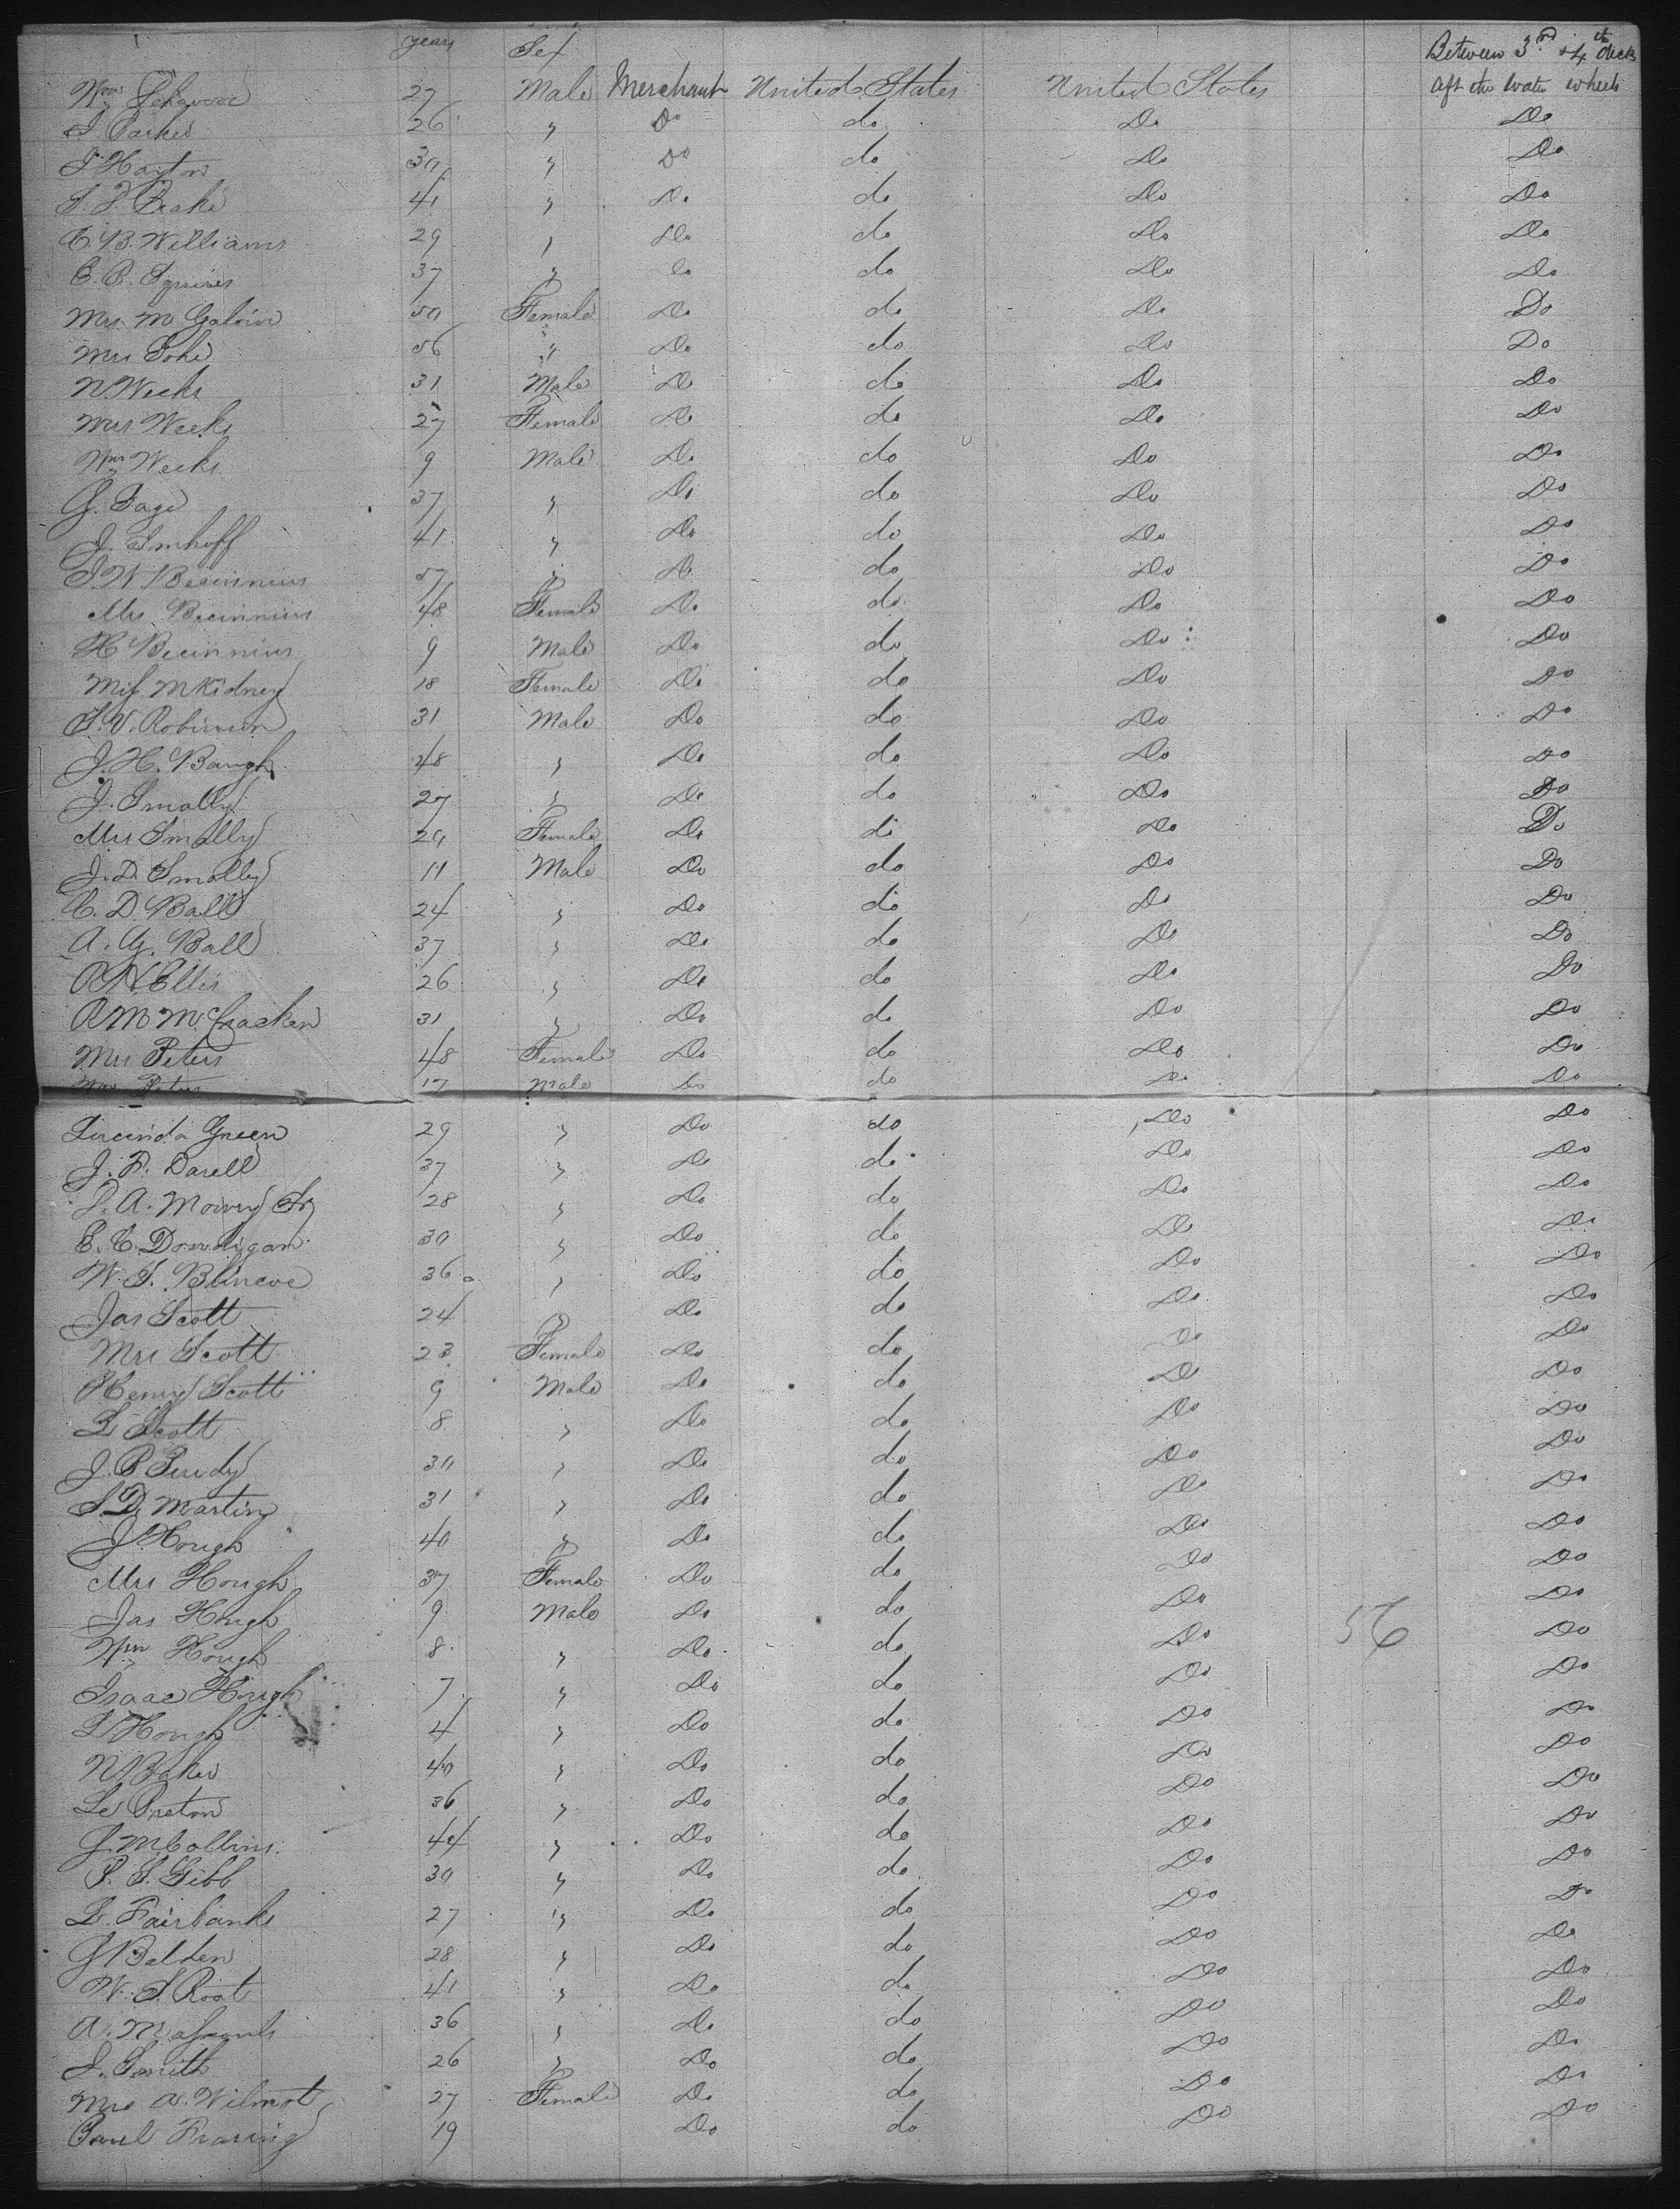 years Sex Between 3rd & 4th decks
Wm 27 Male Merchant United States United States aft the water wheels
J. Parker 26 " Do do Do Do
30 " Do do Do Do
41 " Do do Do Do
C. B. Williams 29 " Do do Do Do
Squires 37 " Do do Do Do
Mrs. M 50 Female Do do Do Do
Mrs 56 " Do do Do Do
N Weeks 31 Male Do do Do Do
Mrs Weeks 27 Female Do do Do Do
Wm Weeks 9 Male Do do Do Do
G. Page 37 " Do do Do Do
J. Imhoff 41 " Do do Do Do
57 " Do do Do Do
Mrs 48 Female Do do Do Do
H 9 Male Do do Do Do
Miss McKidney 18 Female Do do Do Do
S. V. Robinson 31 Male Do do Do Do
J. H. Baugh 28 " Do do Do Do
J. Smally 27 " Do do Do Do
Mrs Smally 29 Female Do do Do Do
J. D. Smally 11 Male Do do Do Do
C. D Ball 24 " Do do Do Do
A. G. Ball 37 " Do do Do Do
R H Ellis 26 " Do do Do Do
R M McCracken 31 " Do do Do Do
Mrs Peters 48 Female Do do Do Do
Wm Peters 17 Male Do do Do Do
Lucinda Green 29 " Do do Do Do
J. F. Darell 37 " Do do Do Do
A. Mowry Sr 28 " Do do Do Do
E. C. Dowdigan 30 " Do do Do Do
W. S. Blincoe 36 " Do do Do Do
Jas Scott 24 " Do do Do Do
Mrs Scott 23 Female Do do Do Do
Henry Scott 9 Male Do do Do Do
L Scott 8 " Do do Do Do
J. P Purdy 30 " Do do Do Do
S. D. Martin 31 " Do do Do Do
J. Hough 40 " Do do Do Do
Mrs Hough 37 Female Do do Do Do
Jas Hough 9 Male Do do Do Do
Wm Hough 8 " Do do Do 56 Do
Isaac Hough 7 " Do do Do Do
L Hough 4 " Do do Do Do
N Baker 40 " Do do Do Do
Le Preton 36 " Do do Do Do
G. M Collins 44 " Do do Do Do
P. S. Gibb 30 " Do do Do Do
L. Fairbanks 27 " Do do Do Do
G Belden 28 " Do do Do Do
W. S. Root 41 " Do do Do Do
A. 36 " Do do Do Do
J. Smith 26 " Do do Do Do
Mrs A. Wilmot 27 Female Do do Do Do
19 Do do Do Do